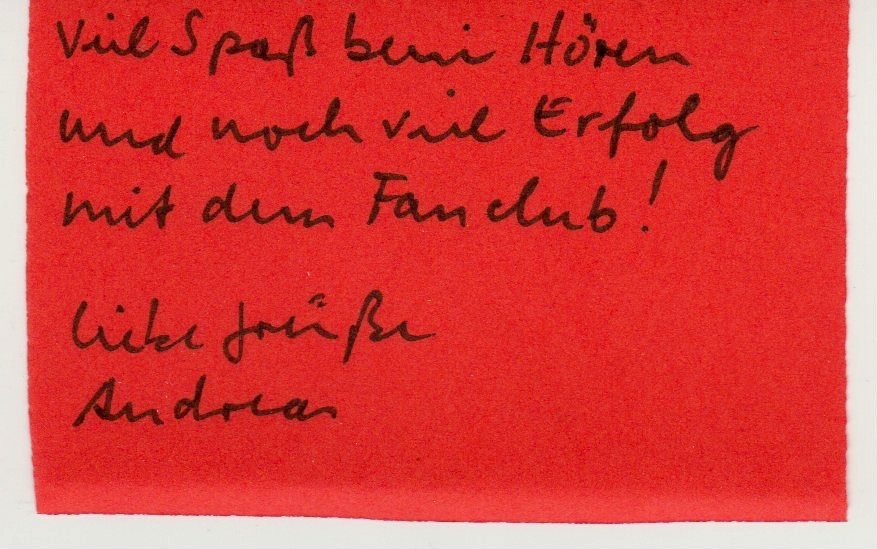 Viel Spaß beim Hören
und noch viel Erfolg
mit dem Fanclub!
liebe Grüße
Andreas